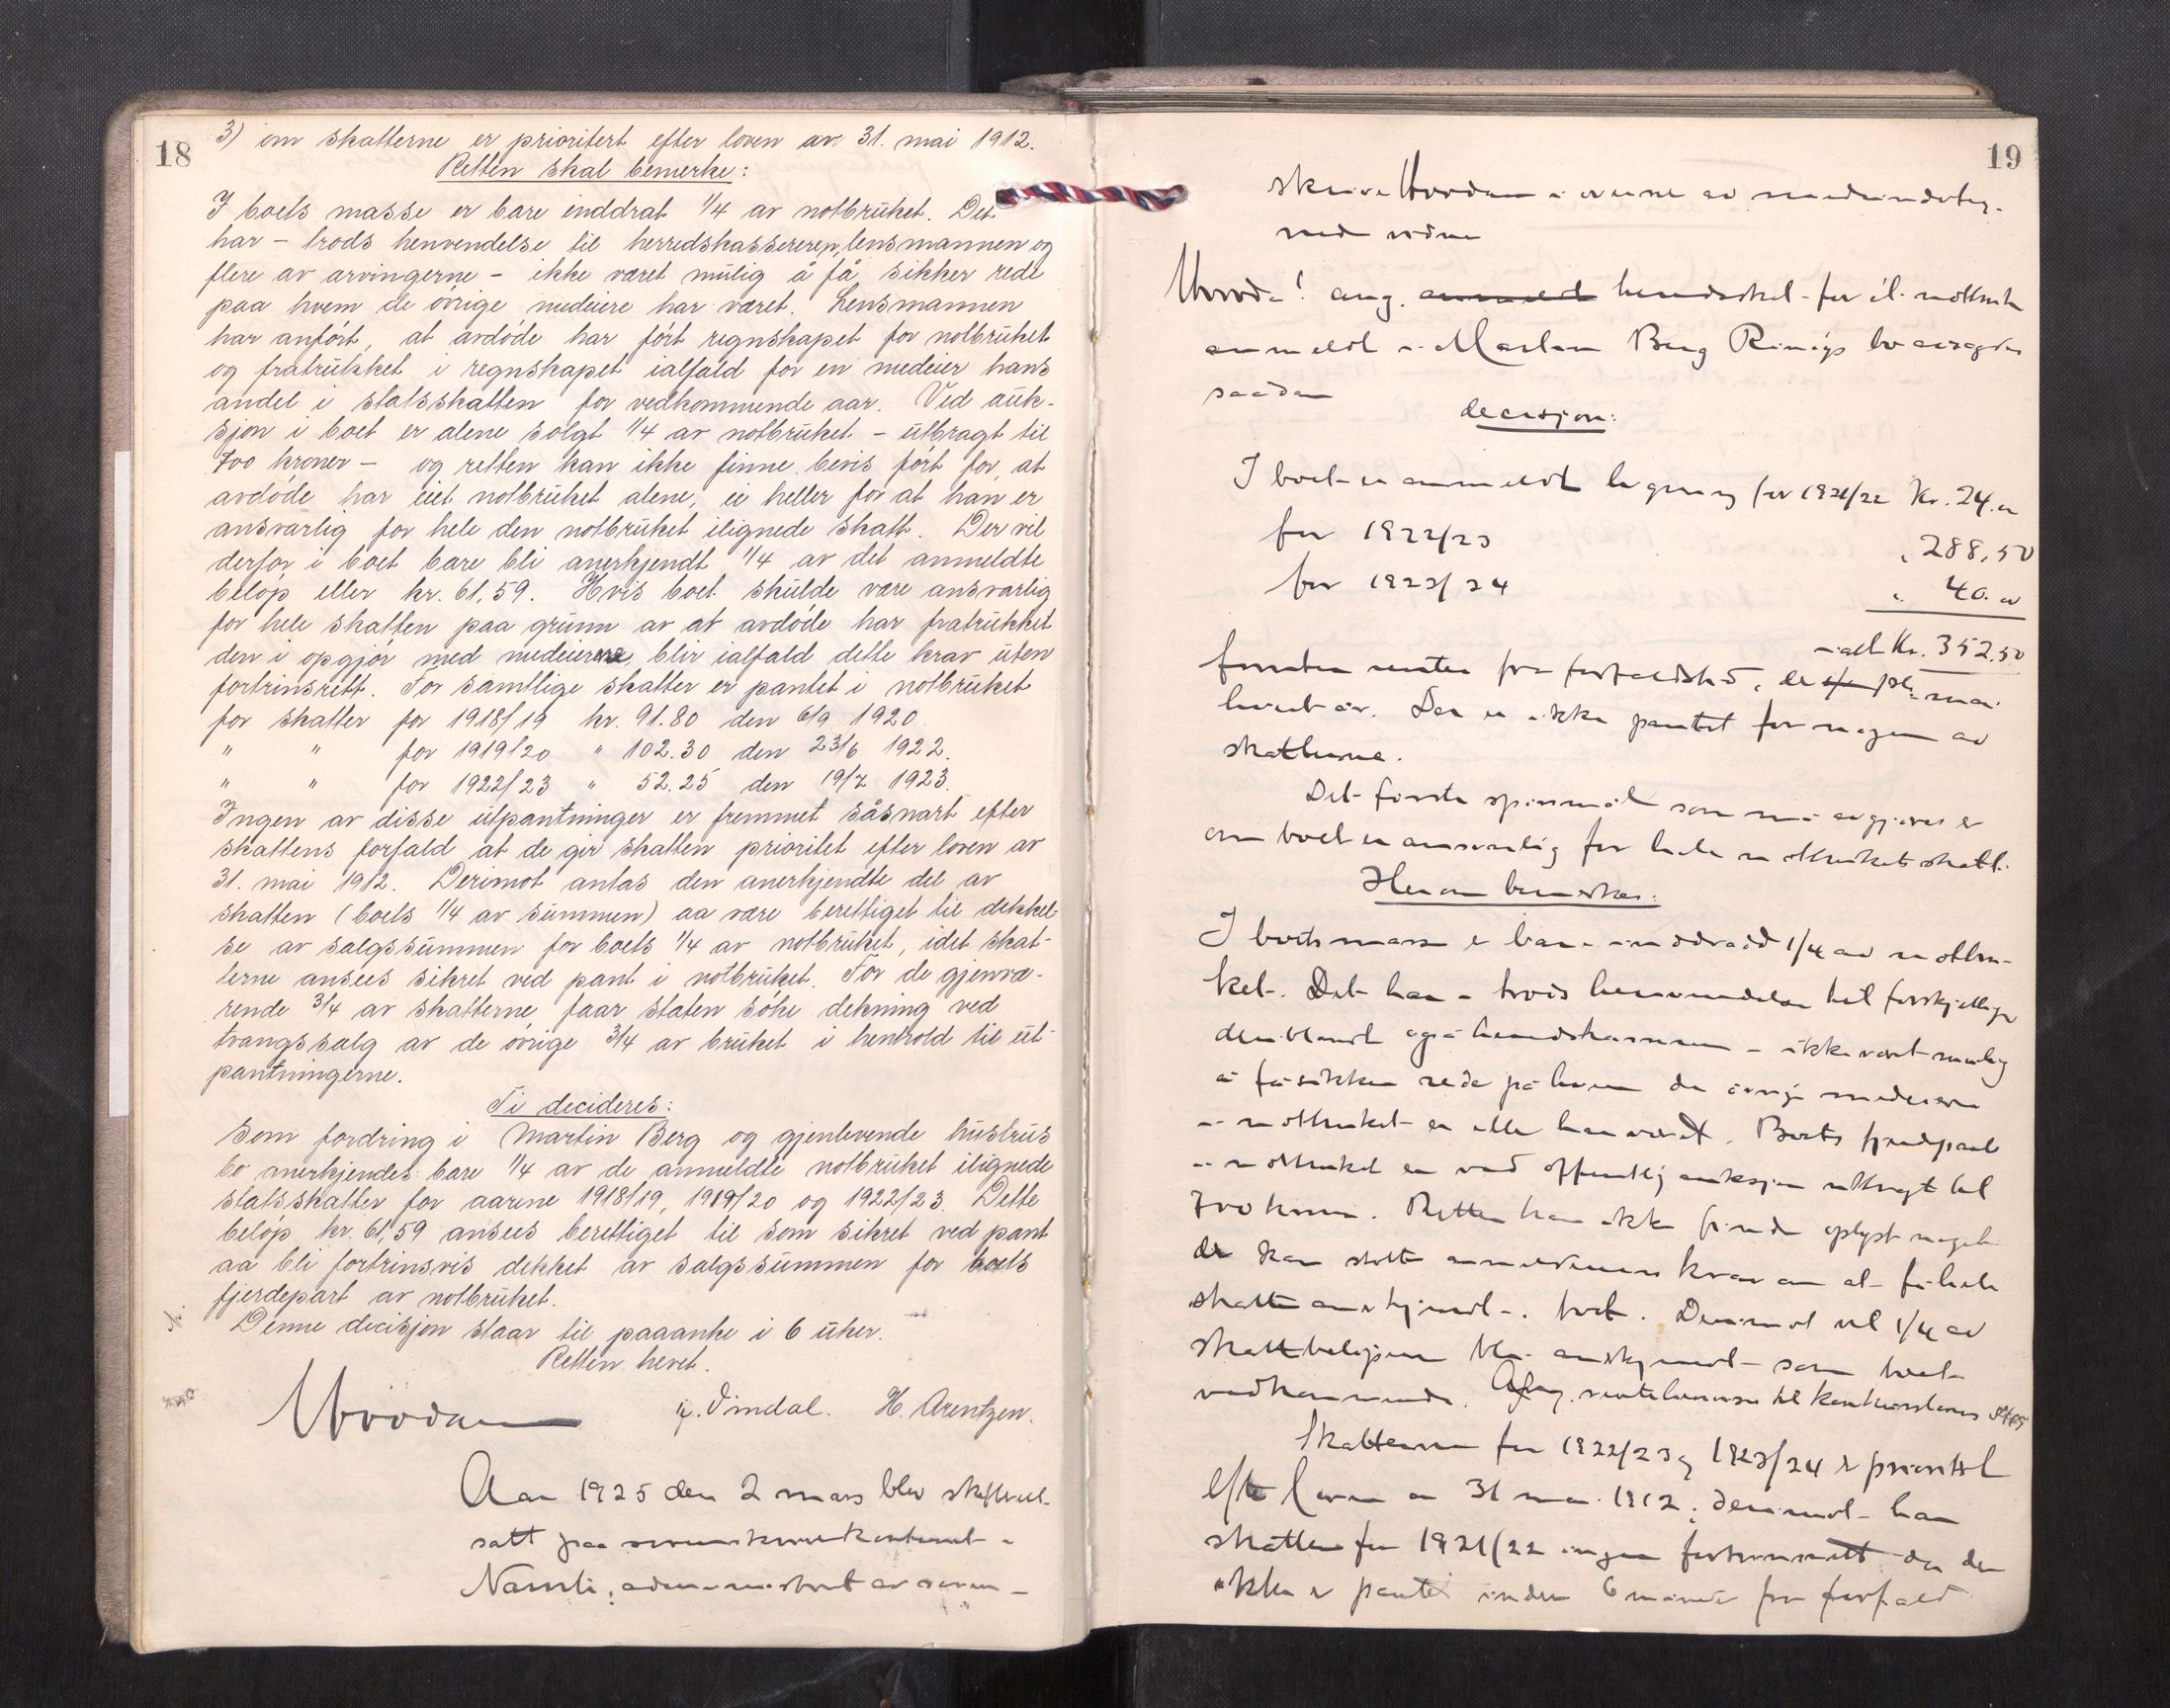 18
3) om skatterne er prioritert efter loven av 31. mai 1912.
Retten skal bemerke:
I boets masse er bare inddrat 1/4 av notbruket. Det
har - trods henvendelse til herredskassereren, lensmannen og
flere av arvingerne - ikke været mulig å få sikker rede
paa hvem de øvrige medeiere har været. Lensmannen
har anført, at avdøde har ført regnskapet for notbruket
og fratrukket i regnskapet ialfald for en medeier hans
andel i statsskatten for vedkommende aar. Ved auk-
sjon i boet er alene solgt 1/4 av notbruket - utbragt til
700 kroner - og retten kan ikke finne bevis ført for, at
avdøde har eiet notbruket alene, ei heller for at han er
ansvarlig for hele den notbruket ilignede skatt. Der vil
derfor i boet bare bli anerkjendt 1/4 av det anmeldte
beløp eller kr. 61,59. Hvis boet skulde være ansvarlig
for hele skatten paa grunn av at avdøde har fratrukket
den i opgjør med medeierne, blir ialfald dette krav uten
fortrinsrett. For samtlige skatter er pantet i notbruket
for skatter for 1918/19 kr. 91.80 den 6/9 1920
" " for 1919/20 " 102.30 den 23/6 1922.
" " for 1922/23 " 52.25 den 19/7 1923.
Ingen av disse utpantninger er fremmet såsnart efter
skattens forfald at de gir skatten prioritet efter loven av
31. mai 1912. Derimot antas den anerkjendte del av
skatten (boets 1/4 av summen) aa være berettiget til dekkel-
se av salgssummen for boets 1/4 av notbruket, idet skat-
terne ansees sikret ved pant i notbruket. For de gjenvæ-
rende 3/4 av skatterne faar staten søke dekning ved
tvangssalg av de øvrige 3/4 av bruket i henhold til ut-
pantningerne.
Ti decideres:
Som fordring i Martin Berg og gjenlevende hustrus
bo anerkjendes bare 1/4 av de anmeldte notbruket ilignede
statsskatter for aarene 1918/19, 1919/20 og 1922/23. Dette
beløp kr. 61,59 ansees berettiget til som sikret ved pant
aa bli fortrinsvis dekket av salgssummen for boets
fjerdepart av notbruket.
Denne decisjon staar til paaanke i 6 uker.
Retten hevet.
Vindal. H. Arentzen.
Aar 1925 den 2 mars blev skifteret
satt paa sorenskriverkontoret i
administrert av soren-
19
skriver i overvær av medundteg-
nede vidne
ang. herredsskat for il. notbruk
anmeldt i Martin Berg bo avsagdes
saadan
decisjon:
I boet er anmeldt ligning for 1921/22 Kr. 24.
for 1922/23 " 288,50
for 1923/24 " 40.
ialt Kr. 352,50
foruten renter fra forfaldstid, mai
hvert år. Der er ikke pantet for nogen av
skatterne.
Det første spørsmål som må avgjøres er
om boet er ansvarlig for hele notbrukets skatt.
Herom bemerkes:
I boets masse er bare inddradd 1/4 av notbru-
ket. Det har - trods henvendelse til forskjellige
deriblandt også herredskassereren - ikke vært mulig
å få sikker rede på hvem de øvrige medeiere
i notbruket er eller har været. Boets fjerdepart
i notbruket er ved offentlig auksjon utbragt til
700 kroner. Retten har ikke funde oplyst noget
der kan støtte anmelderens krav om at få hele
skatten anerkjendt i boet. Derimot vil 1/4 av
skattebeløpene bli anerkjendt som boet
vedkommende. rentekravene til konkurslovens
Skatterne for 1922/23 og 1923/24 er prioritert
efter loven av 31 mai 1912; derimot har
skatten for 1921/22 ingen fortrinsrett da der
ikke er pantet inden 6 måneder fra forfald